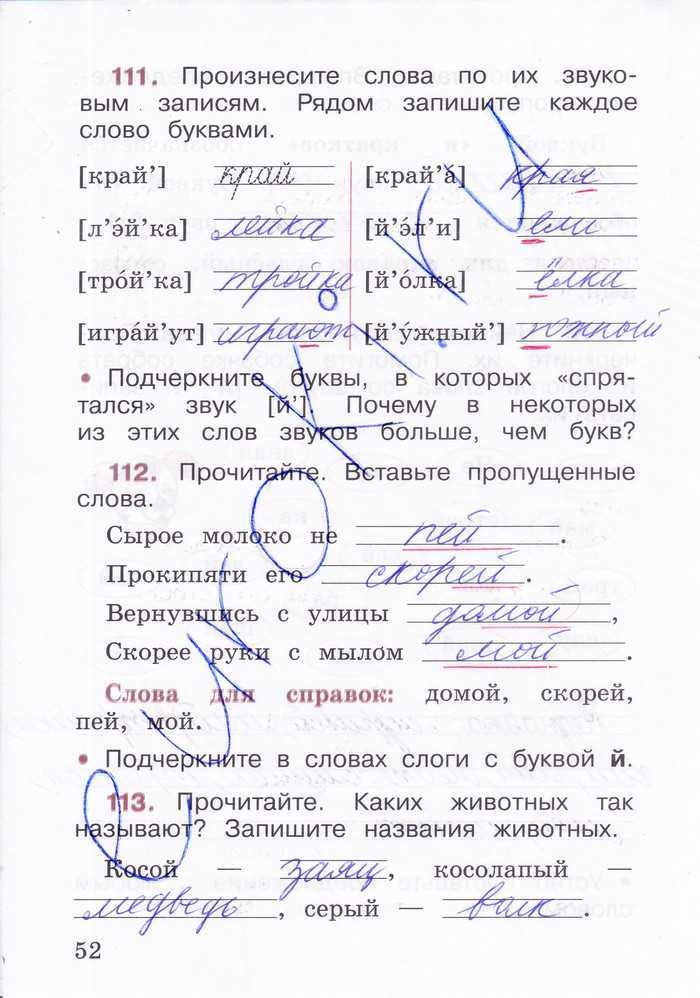 111. Произнесите слова по их звуко-
вым записям. Рядом запишите каждое
слово буквами.
[край'] край [край'а́] края
[л'э́й'ка] лейка [й'э́л'и] ели
[тро́й'ка] тройка [й'о́лка] ёлка
[игра́й'ут] играют [й'у́жный'] южный
• Подчеркните буквы, в которых «спря-
тался» звук [й']. Почему в некоторых
из этих слов звуков больше, чем букв?
112. Прочитайте. Вставьте пропущенные
слова.
Сырое молоко не пей.
Прокипяти его скорей.
Вернувшись с улицы домой,
Скорее руки с мылом мой.
Слова для справок: домой, скорей,
пей, мой.
• Подчеркните в словах слоги с буквой й.
113. Прочитайте. Каких животных так
называют? Запишите названия животных.
Косой — заяц, косолапый —
медведь, серый — волк.
52